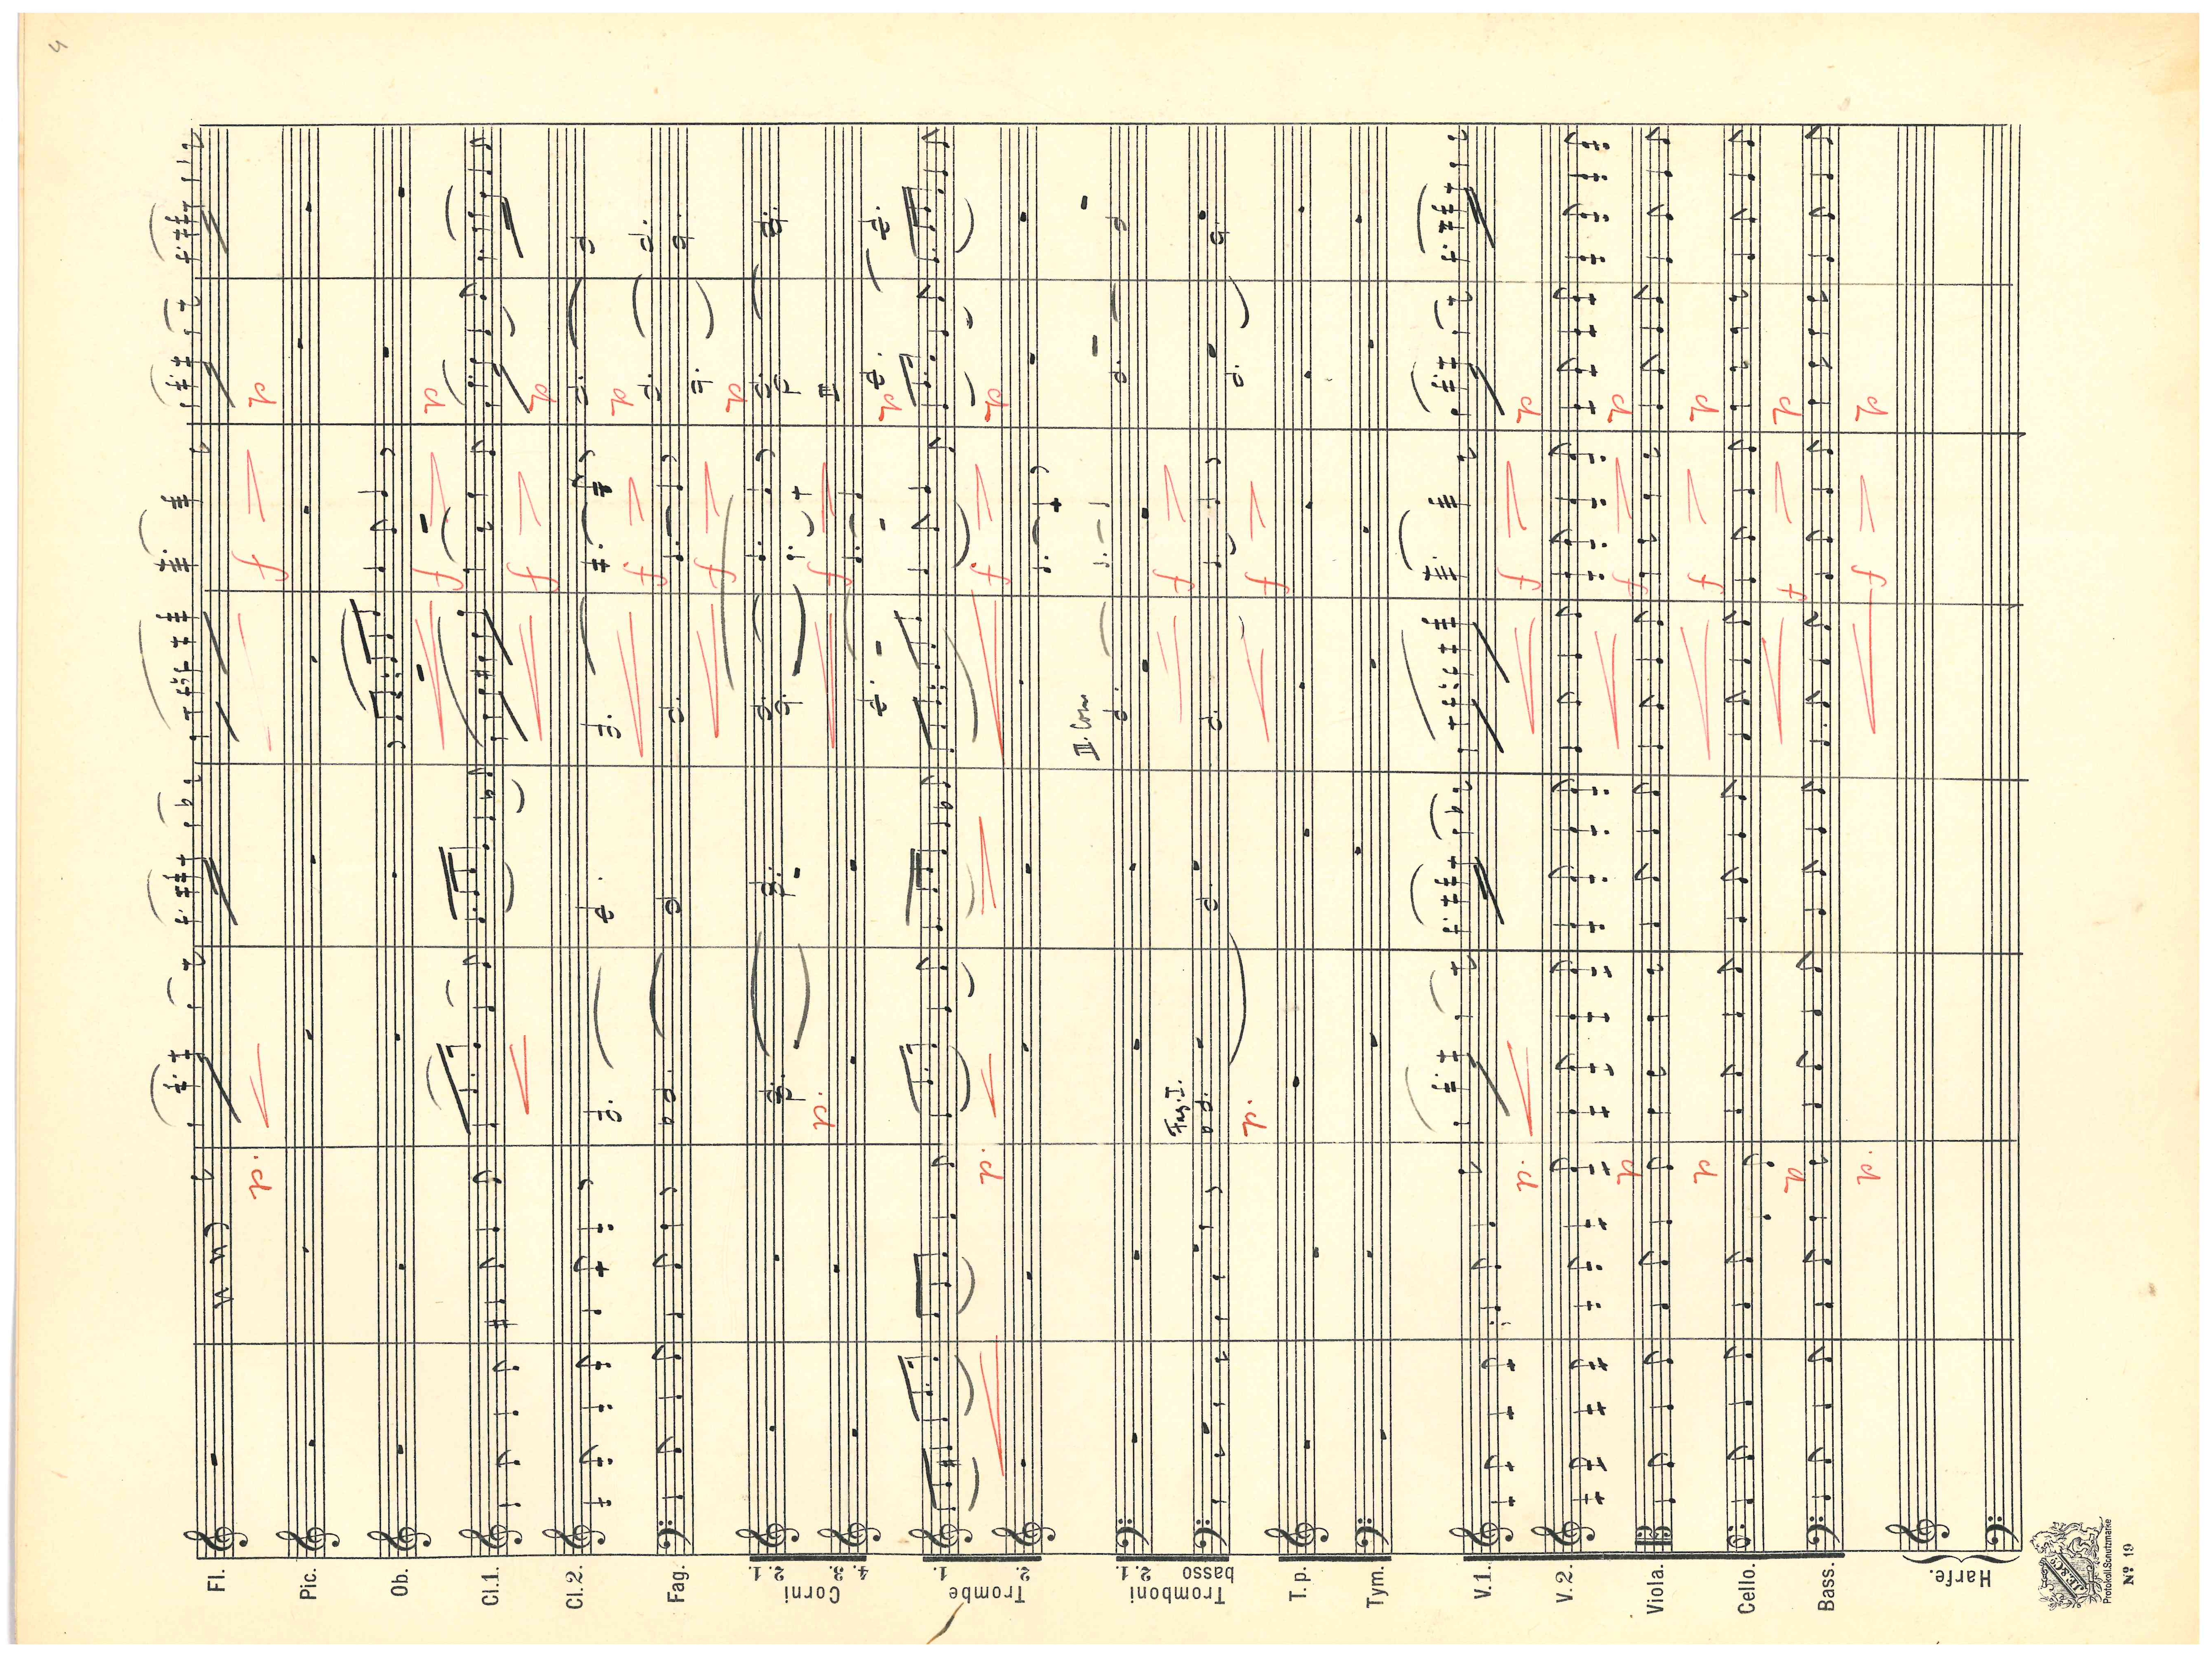 4
Fl.
Pic.
Ob.
Cl.1.
Cl.2.
Fag.
2. 1.
Corni
4. 3.
1.
Trombe
2.
2. 1.
Tromboni
basso
T.p.
Tym.
V.1.
V.2.
Viola.
Cello.
Bass.
Harfe.
III. Corn
Fag. I.
p.
p.
p.
p.
p.
p
p
p
p.
f
f
f
f
f
f
f
f
f
f
f
f
f
f
p
p
p
p
p
p
p
p
p
p
p
p
J.E.&Co.
Protokoll.Schutzmarke
No 19